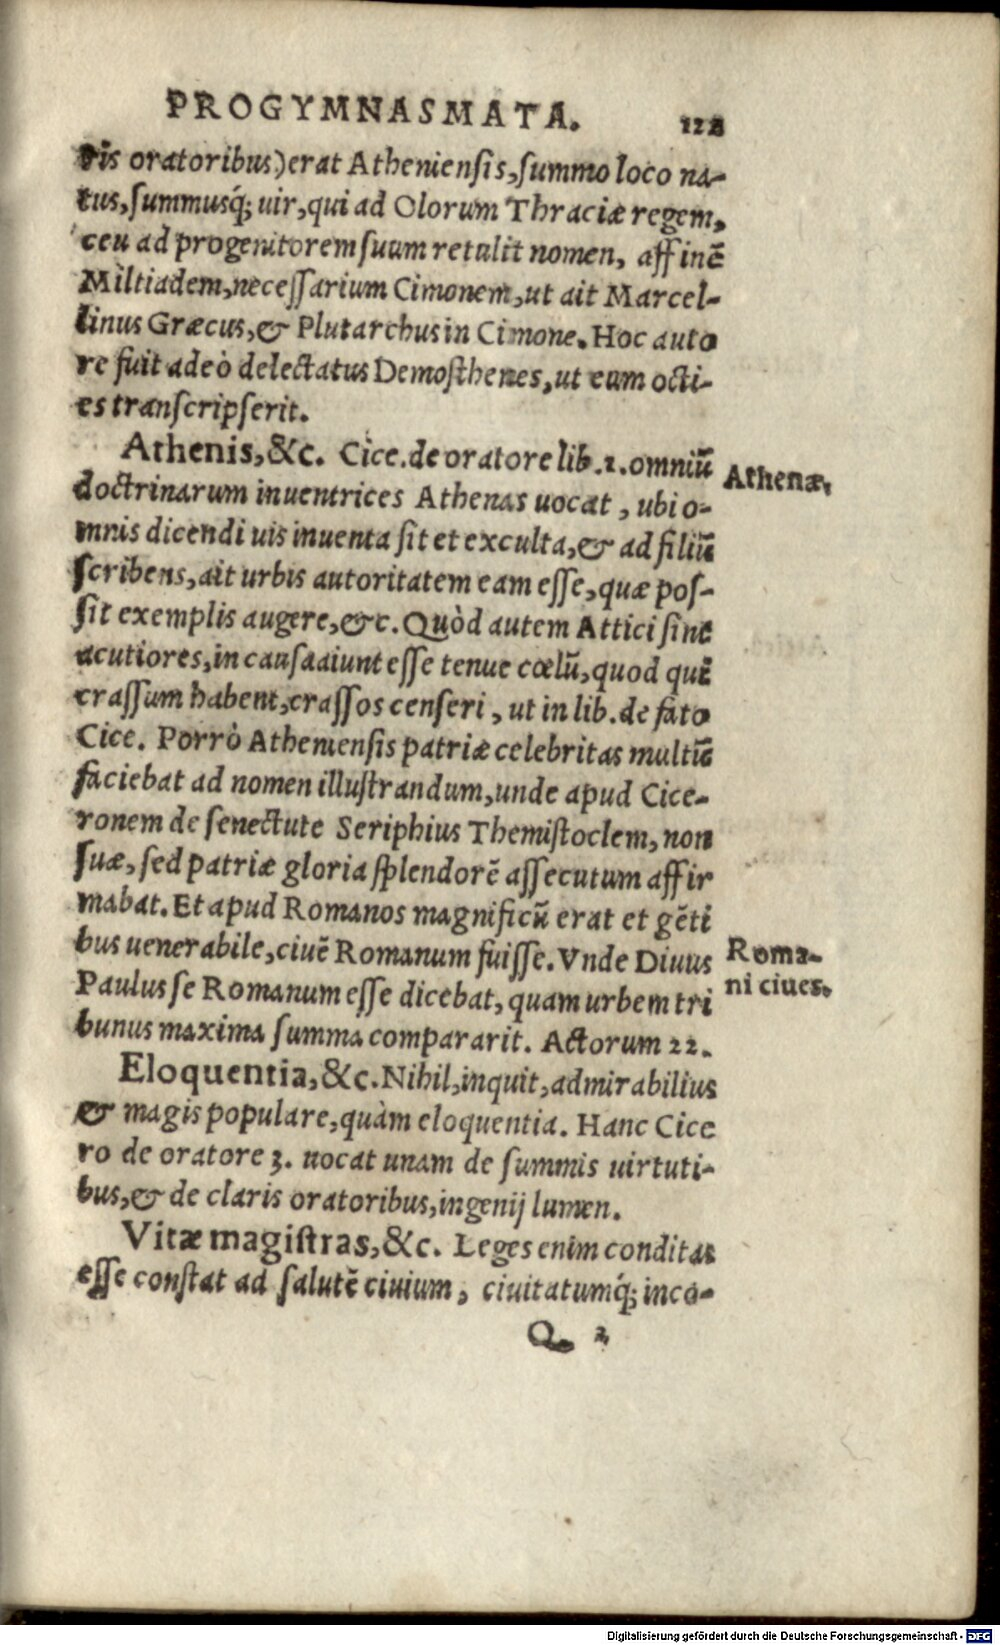 PROGYMNASMATA. 122
ris oratoribus) erat Atheniensis, summo loco na-
tus, summusq́; uir, qui ad Olorum Thraciæ regem,
ceu ad progenitorem suum retulit nomen, affinẽ
Miltiadem, necessarium Cimonem, ut ait Marcel-
linus Græcus, & Plutarchus in Cimone. Hoc auto
re fuit adeò delectatus Demosthenes, ut eum octi-
es transcripserit.
Athenis, &c. Cice. de oratore lib. 1. omniũ
Athenæ,
doctrinarum inuentrices Athenas uocat, ubi o-
mnis dicendi uis inuenta sit et exculta, & ad filiũ
scribens, ait urbis autoritatem eam esse, quæ pos-
sit exemplis augere, &c. Quòd autem Attici sint
acutiores, in causa aiunt esse tenue cœlũ, quod quẽ
crassum habent, crassos censeri, ut in lib. de fato
Cice. Porrò Atheniensis patriæ celebritas multũ
faciebat ad nomen illustrandum, unde apud Cice-
ronem de senectute Seriphius Themistoclem, non
suæ, sed patriæ gloria splendorẽ assecutum affir
mabat. Et apud Romanos magnificũ erat et gẽti
bus uenerabile, ciuẽ Romanum fuisse. Vnde Diuus
Roma-
Paulus se Romanum esse dicebat, quam urbem tri
ni ciues.
bunus maxima summa compararit. Actorum 22.
Eloquentia, &c. Nihil, inquit, admirabilius
& magis populare, quàm eloquentia. Hanc Cice
ro de oratore 3. uocat unam de summis uirtuti-
bus, & de claris oratoribus, ingenij lumen.
Vitæ magistras, &c. Leges enim conditas
esse constat ad salutẽ ciuium, ciuitatumq́; inco-
Q 2
Digitalisierung gefördert durch die Deutsche Forschungsgemeinschaft - DFG